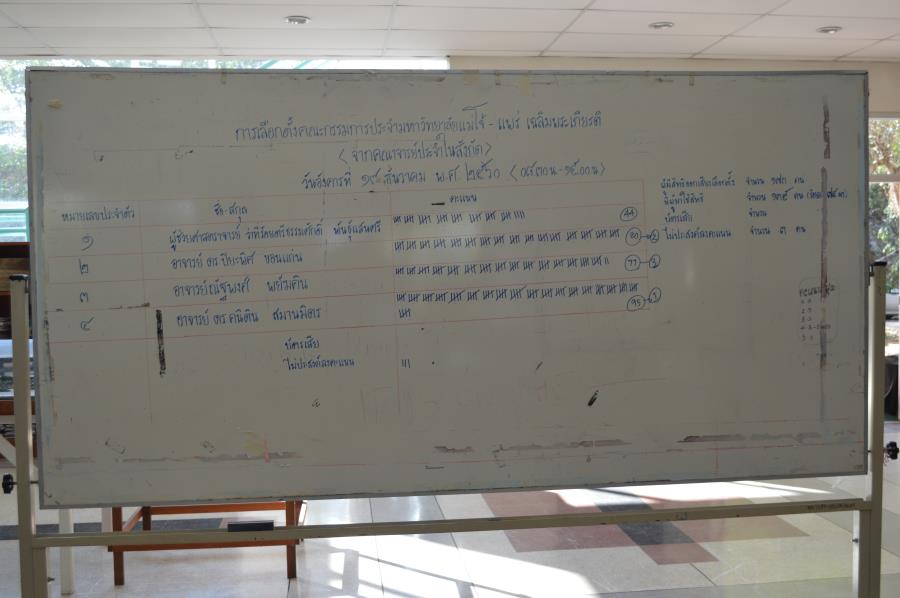 การเลือกตั้งคณะกรรมการประจำมหาวิทยาลัยแม่โจ้ - แพร่ เฉลิมพระเกียรติ
< จากคณาจารย์ประจำในสังกัด >
วันอังคารที่ ๑๙ ธันวาคม พ.ศ. ๒๕๖๐ < ๐๘.๓๐ น - ๑๕.๐๐ น >
หมายเลขประจำตัว ชื่อ-สกุล คะแนน
๑ ผู้ช่วยศาสตราจารย์ ว่าที่ร้อยตรีธรรมศักดิ์ พันธุ์แสนศรี 44
๒ อาจารย์ ดร.ปิยะนิศ ขอนแก่น 80 2
๓ อาจารย์ณัฐพงศ์ พยัมดิน 77
๔ อาจารย์ ดร.คนิติน สมานมิตร 95 1
บัตรเสีย
ไม่ประสงค์ลงคะแนน
จำนวน คน
ผู้มาใช้สิทธิ จำนวน คน
บัตรเสีย จำนวน
ไม่ประสงค์ลงคะแนน จำนวน ๓ คน